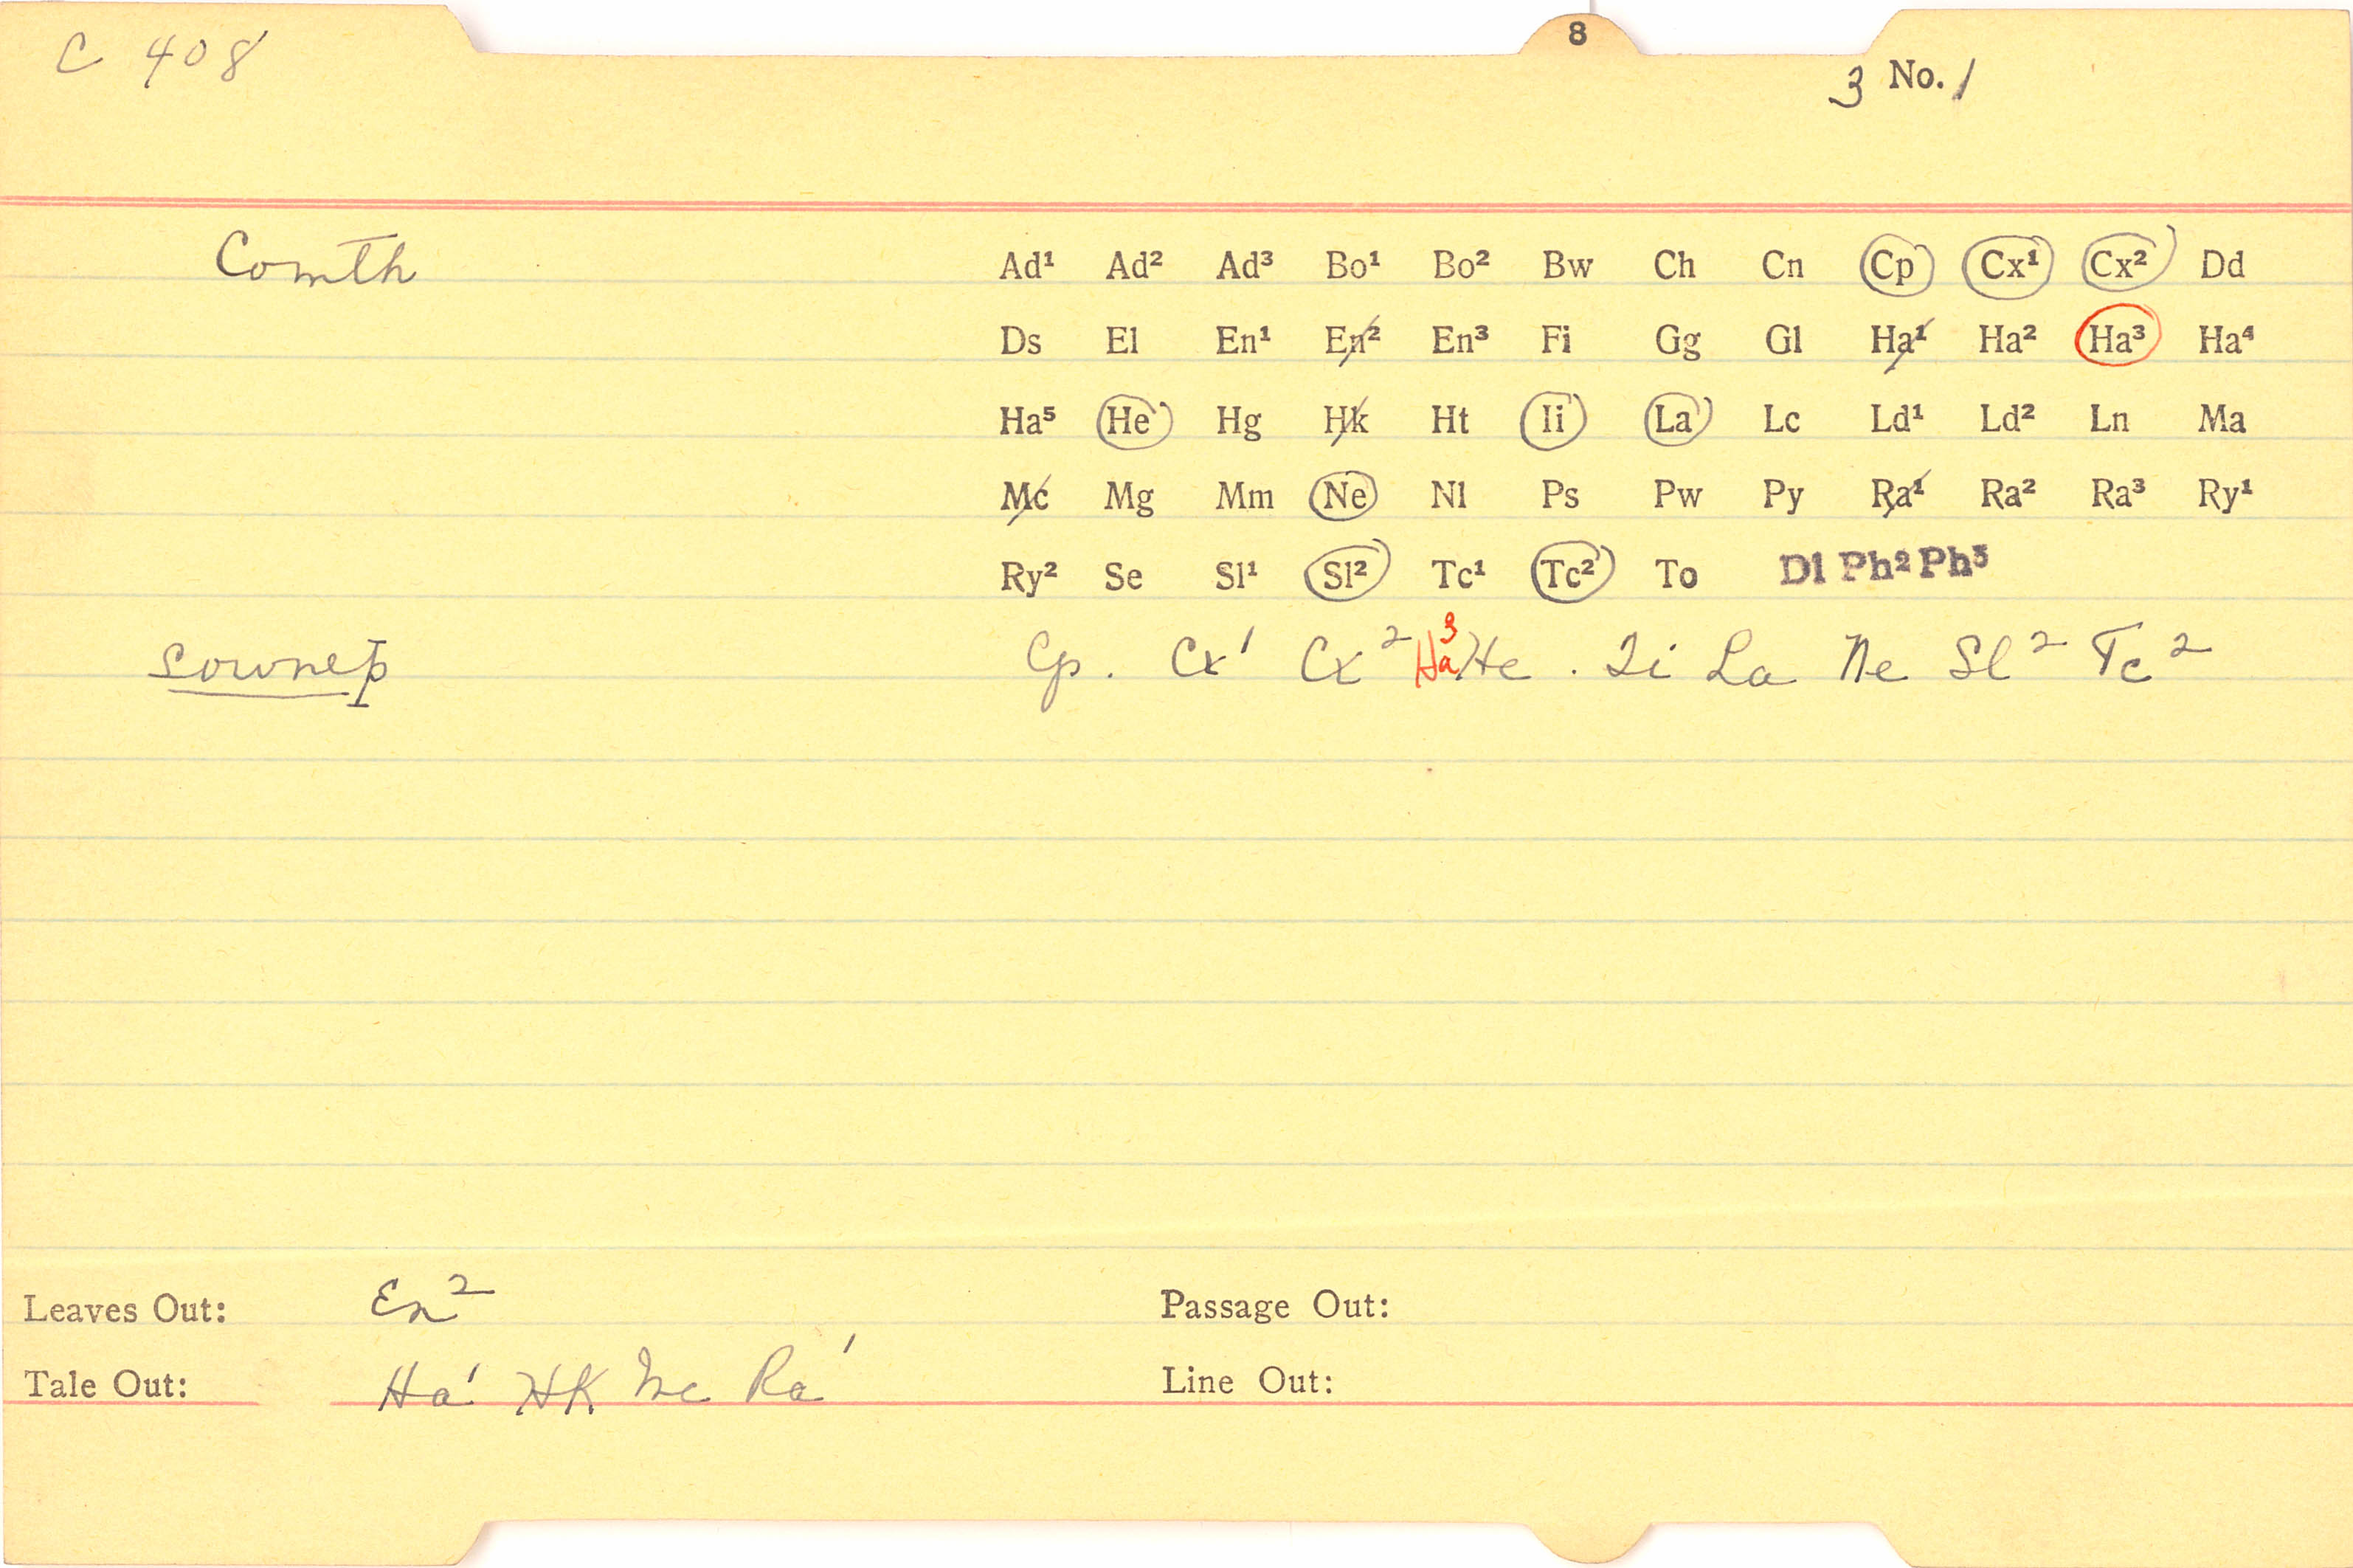 8
C 408
3 No. 1
Comth Ad¹ Ad² Ad³ Bo¹ Bo² Bw Ch Cn Cp Cx¹ Cx² Dd
Ds El En¹ En² En³ Fi Gg Gl Ha¹ Ha² Ha³ Ha⁴
Ha⁵ He Hg Hk Ht Ii La Lc Ld¹ Ld² Ln Ma
Mc Mg Mm Ne Nl Ps Pw Py Ra¹ Ra² Ra³ Ry¹
Ry² Se Sl¹ Sl² Tc¹ Tc² To Dl Ph² Ph³
sowneþ Cp. Cx¹ Cx² Ha³ He. Ii La Ne Sl² Tc²
Leaves Out: En² Passage Out:
Tale Out: Ha¹ HK Mc Ra¹ Line Out: